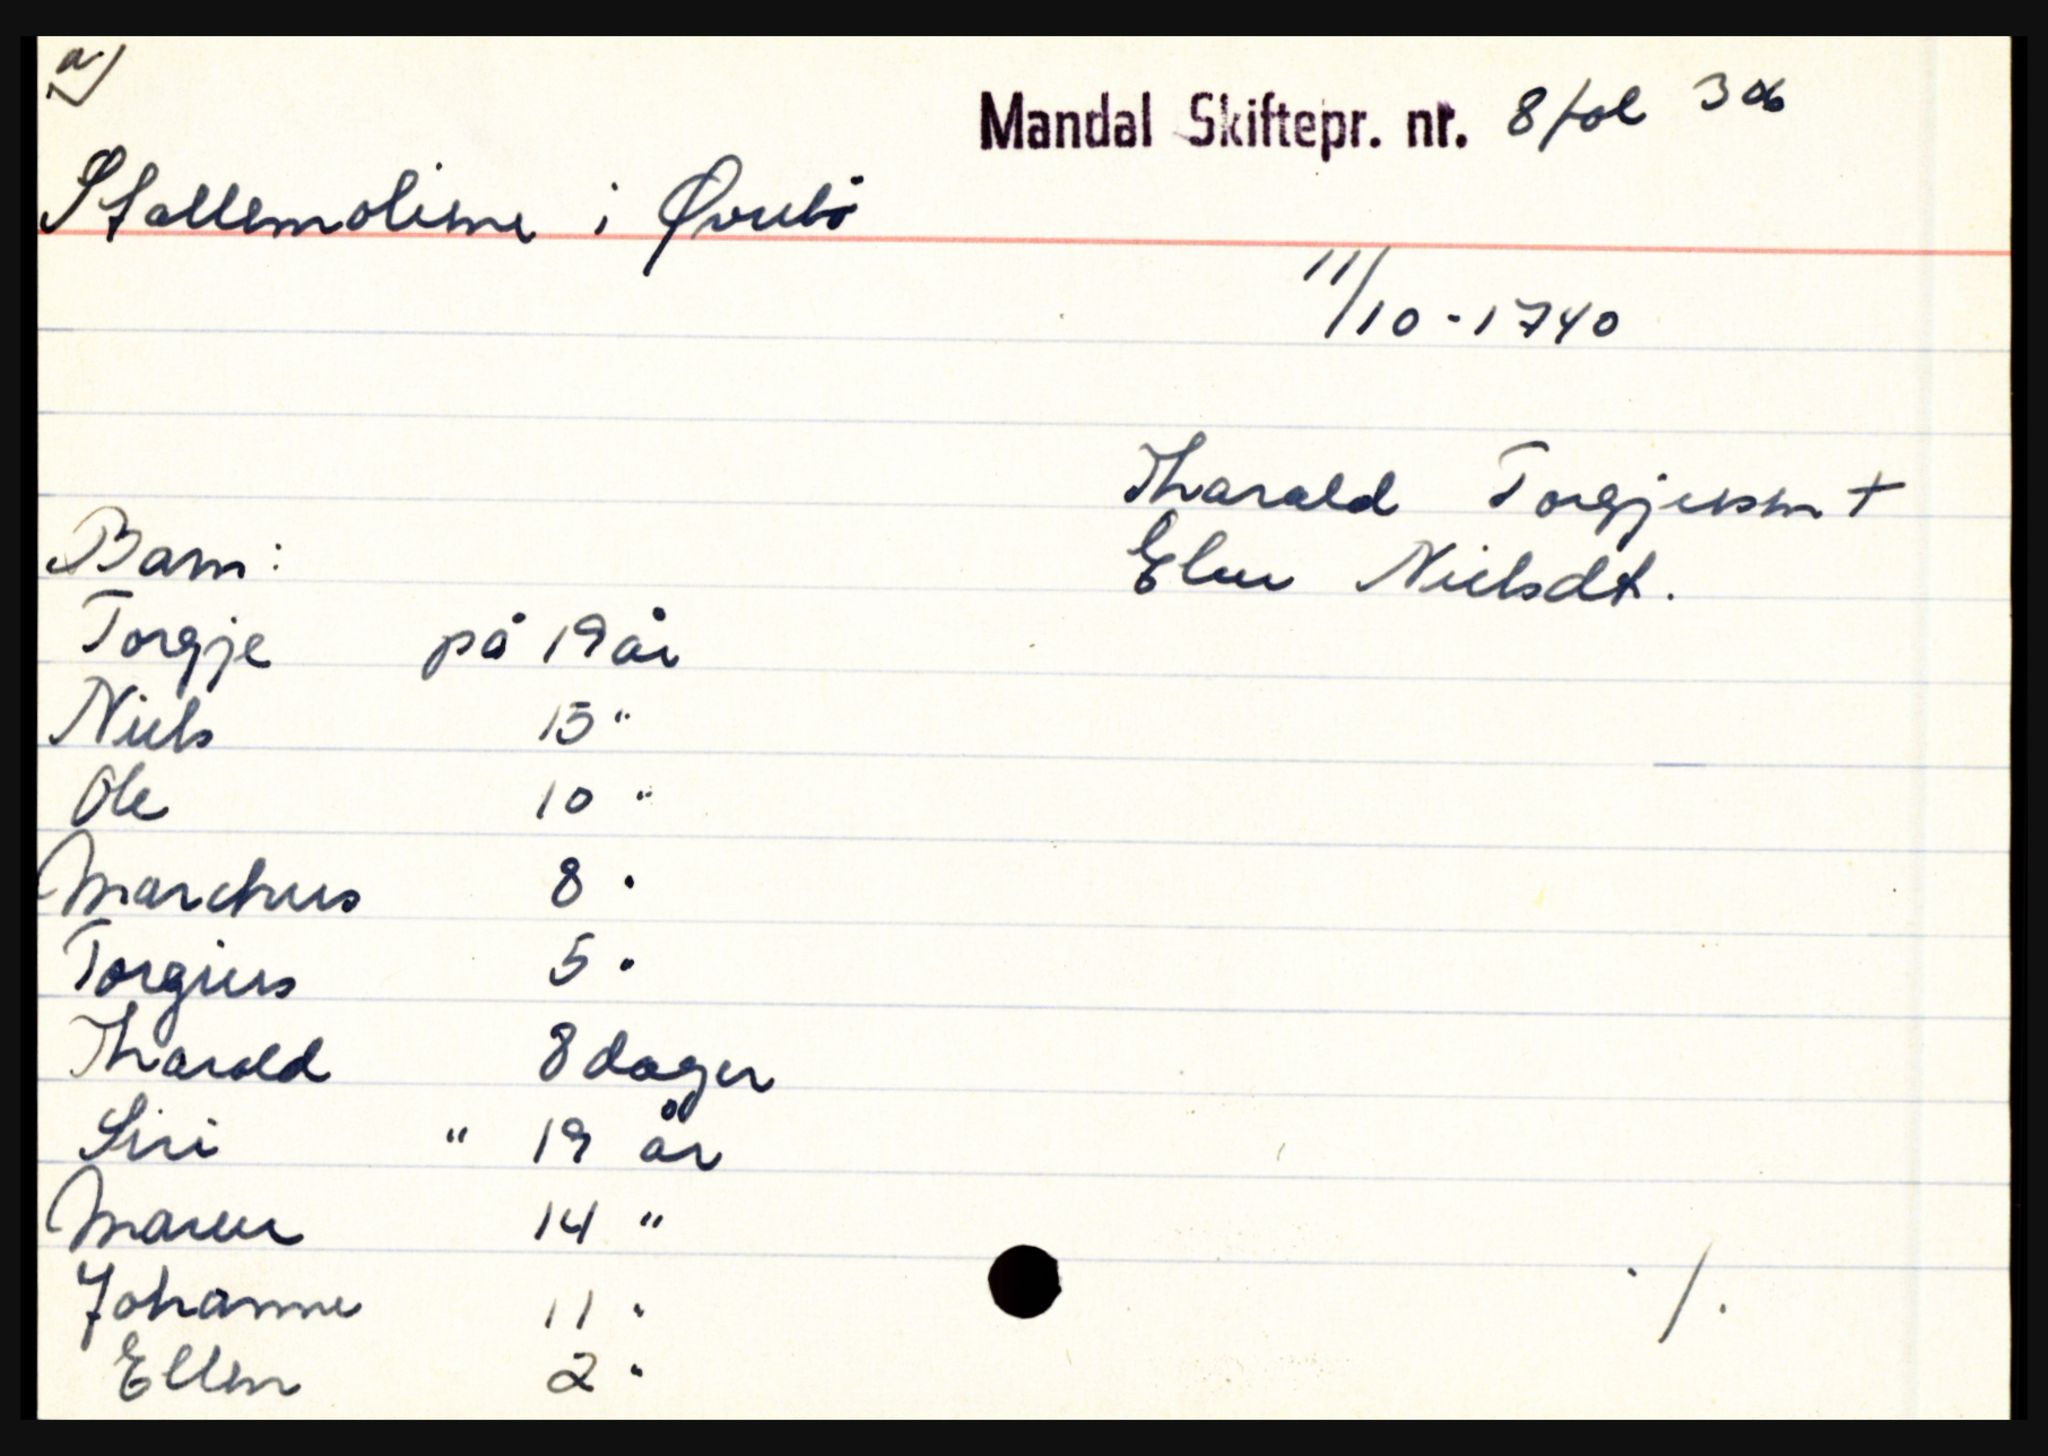 a)
Mandal Skiftepr. nr. 8 fol 306
Stallemolene i Øvrebö
11/10-1740
Tharald Torgjersen +
Elen Nielsdt.
Barn:
Torgje på 19 år
Niels 15 "
Ole 10 "
Marchus 8 "
Torgius 5 "
Tharald 8 dager
Siri " 19 år
Maren 14 "
Johanne 11 "
Ellen 2 "
./.